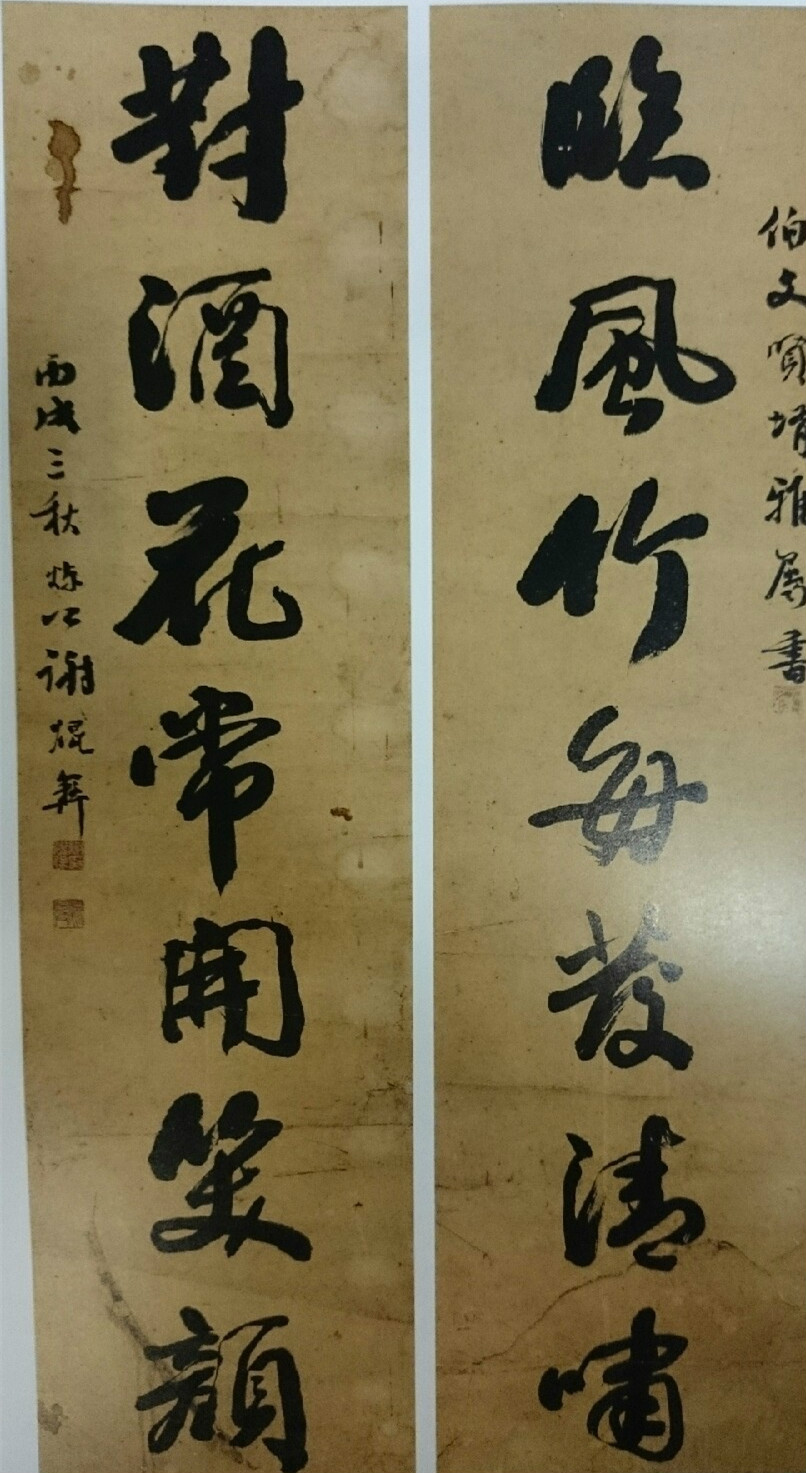 伯文賢壻雅屬書
臨風竹每發清嘯
對酒花常開笑顏
丙戌三秋煉公謝焜彝